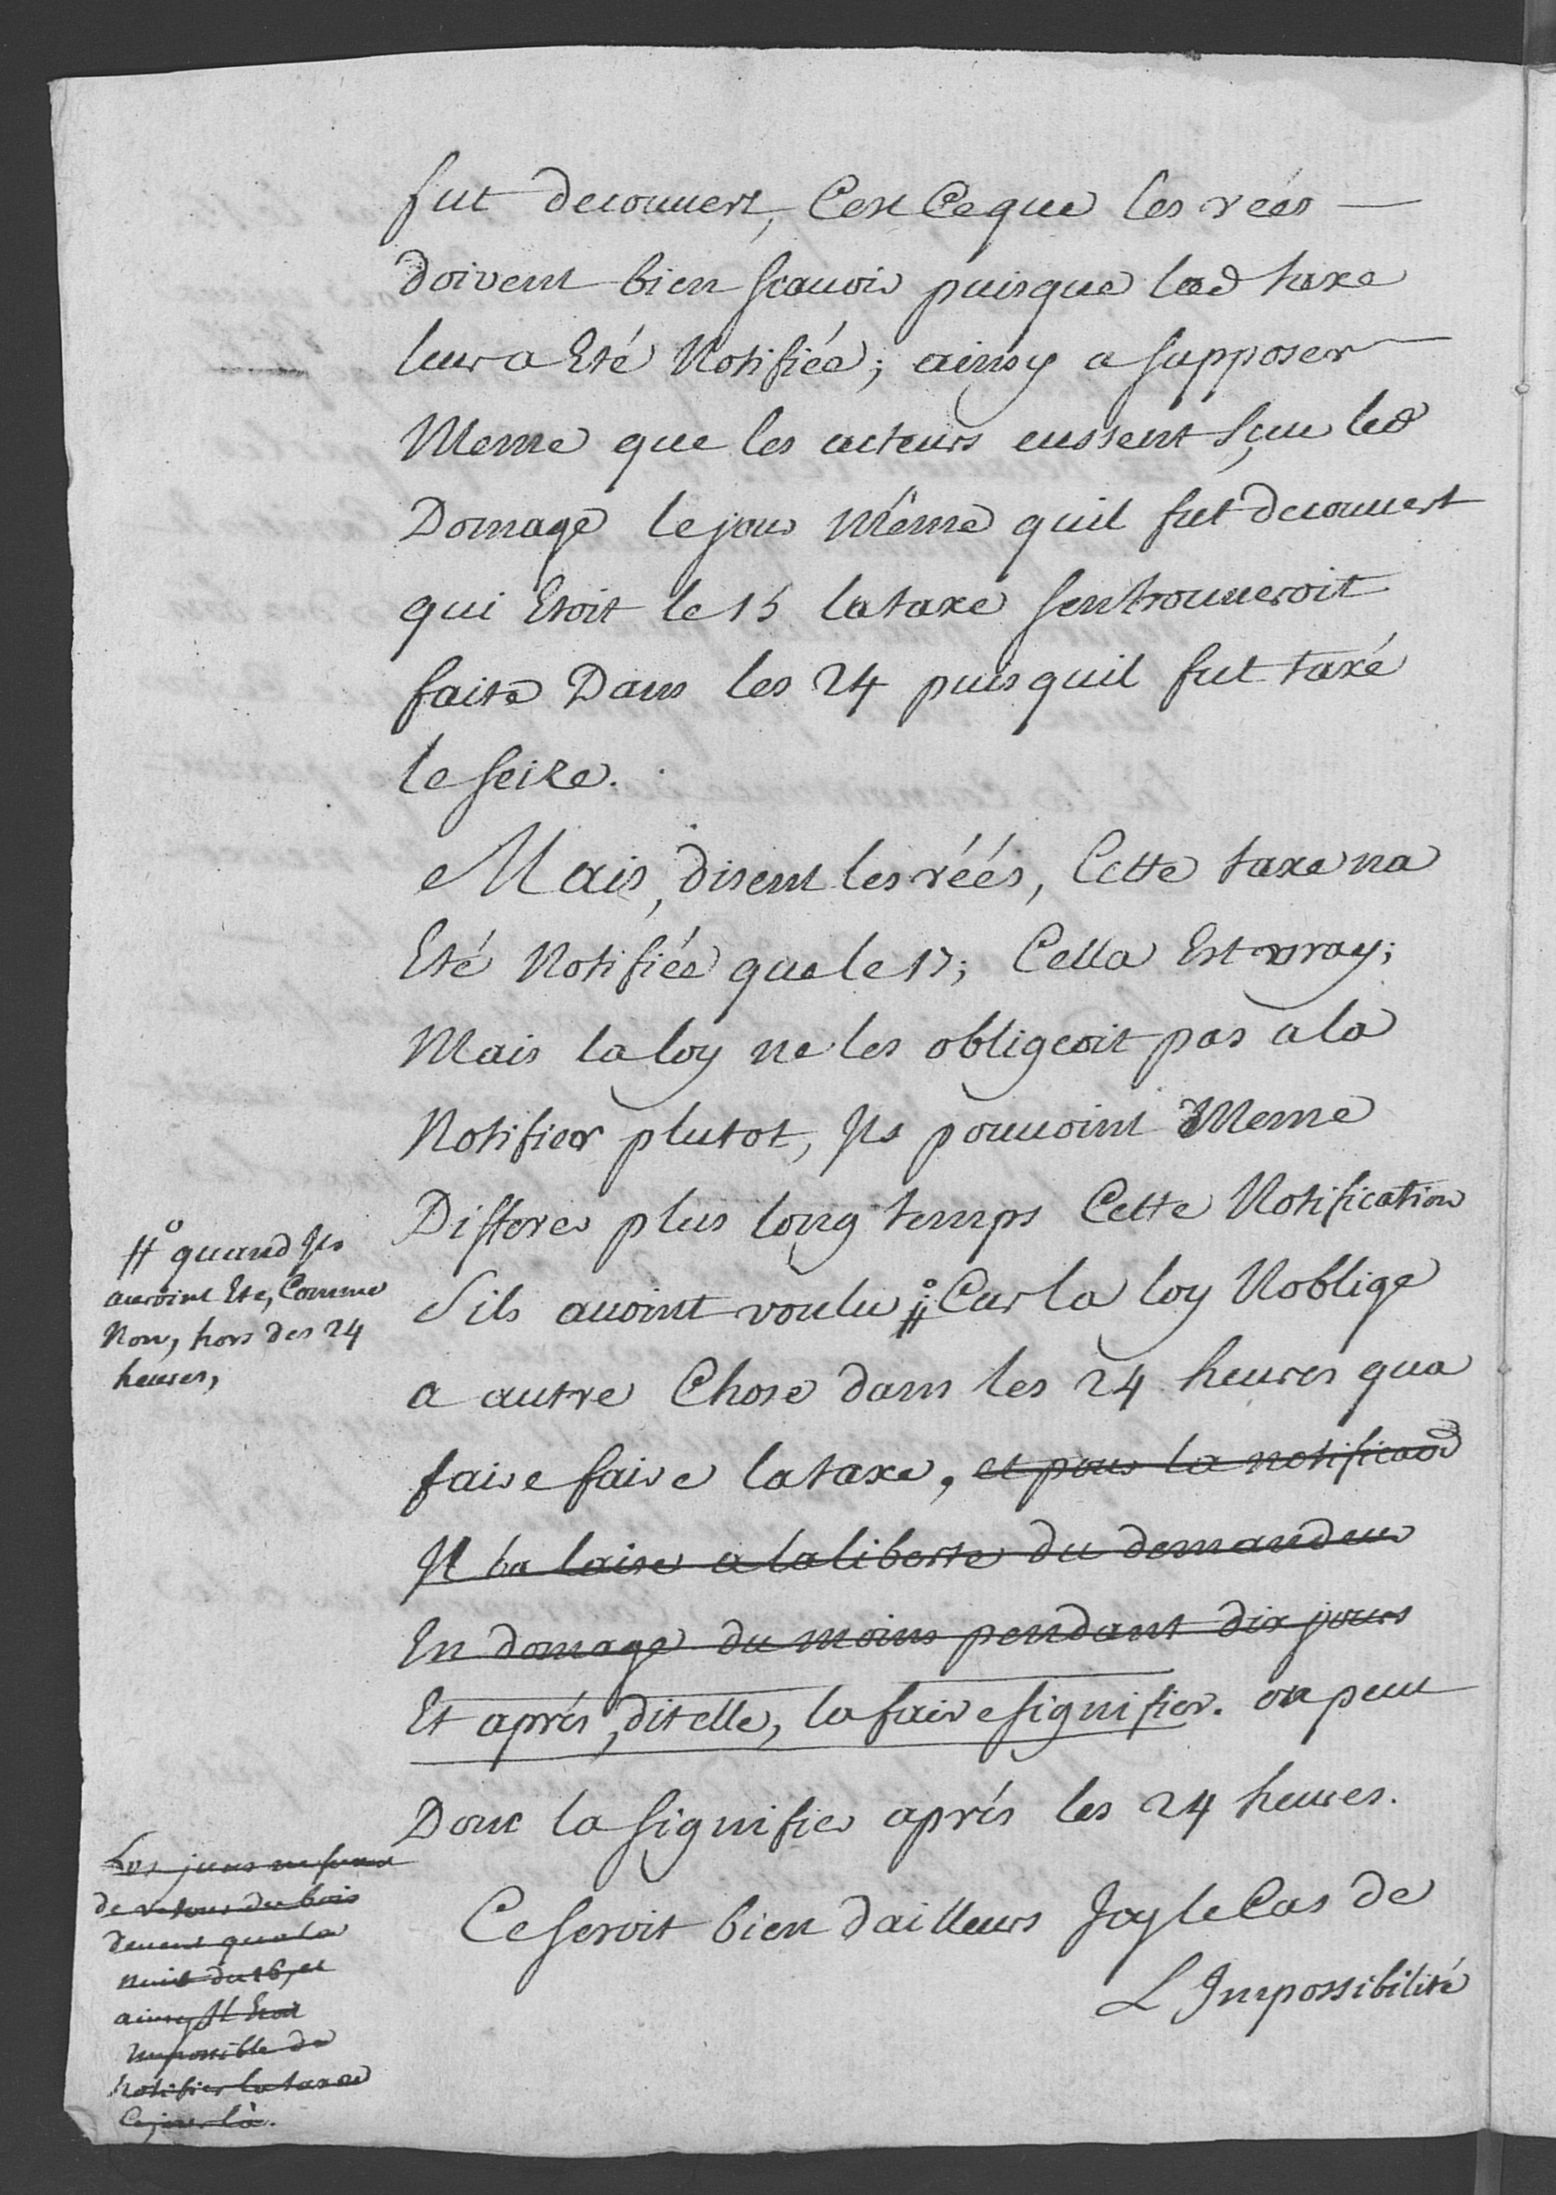 fut decouvert, C'est Ce que les réés —
doivent bien scavoir puisque lad taxe
leur a Eté Notifiée; ainsy a supposer
Meme que les acteurs eussent sçeu led
Domage le jour même quil fut decouvert
qui Etoit le 15 la taxe sentrouveroit
faite Dans les 24 puis quil fut taxé
le seize.
Mais, disent les réés, Cette taxe na
Eté Notifiée que le 17; Cella Est vray;
Mais la loy ne les obligeoit pas a la
Notifier plutot, Ils pouvoint Meme
Differer plus long temps Cette Notification
S'ils avoint voulu # Car la loy N'oblige
# quand Ils
auroint Eté, Comme
Non, hors des 24
heures,
a autre Chose dans les 24 heures qua
faire faire la taxe, et pour la notificaõn
Il la laise a la liberte du demandeur
En domage du moins pendant dix jours
Et aprés, dit elle, la faire signifier. on peut
Donc la signifier aprés les 24 heures.
Ce seroit bien d'ailleurs Icy le Cas de
L'Impossibilité
Les jures ne furent
de retour du bois
devent qua la
nuit du 16, et
ainsy Il Etoit
Impossible de
Notifier la taxe
Ce jour là.